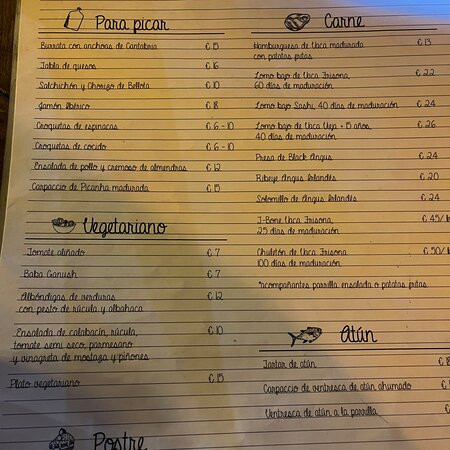 Para picar
Burrata con anchoas de Cantabria € 15
Tabla de quesos € 16
Salchichón y Chorizo de Bellota € 10
Jamón Ibérico € 18
Croquetas de espinacas € 6 - 10
Croquetas de cocido € 6 - 10
Ensalada de pollo y cremoso de almendras € 12
Carpaccio de Picanha madurada € 15
Vegetariano
Tomate aliñado € 7
Baba Ganush € 7
Albóndigas de verduras € 12
con pesto de rúcula y albahaca
Ensalada de calabacín, rúcula, € 10
tomate semi seco, parmesano
y vinagreta de mostaza y piñones
Plato vegetariano € 15
Postre
Carne
Hamburguesa de Vaca madurada € 13
con patatas fritas
Lomo bajo de Vaca Frisona, € 22
60 días de maduración
Lomo bajo Sashi, 40 días de maduración € 24
Lomo bajo de Vaca Vieja + 15 años, € 26
40 días de maduración
Presa de Black Angus € 24
Ribeye Angus Irlandés € 20
Solomillo de Angus Irlandés € 24
T-Bone Vaca Frisona, € 45/
25 días de maduración
Chuletón de Vaca Frisona € 50/
100 días de maduración
*Acompañantes parrilla, ensalada o patatas fritas
Atún
Tartar de atún €
Carpaccio de ventresca de atún ahumado €
Ventresca de atún a la parrilla €